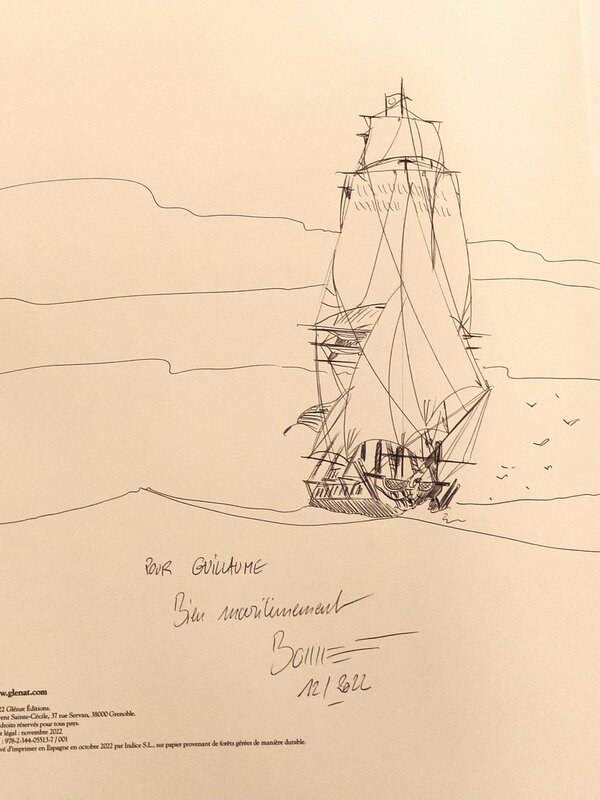 POUR GUILLAUME
Bien maritimement
12/2022
w.glenat.com
22 Glénat Éditions.
vent Sainte-Cécile, 37 rue Servan, 38000 Grenoble.
droits réservés pour tous pays.
légal : novembre 2022
: 978-2-344-05513-7 / 001
vé d'imprimer en Espagne en octobre 2022 par Indice S.L., sur papier provenant de forêts gérées de manière durable.